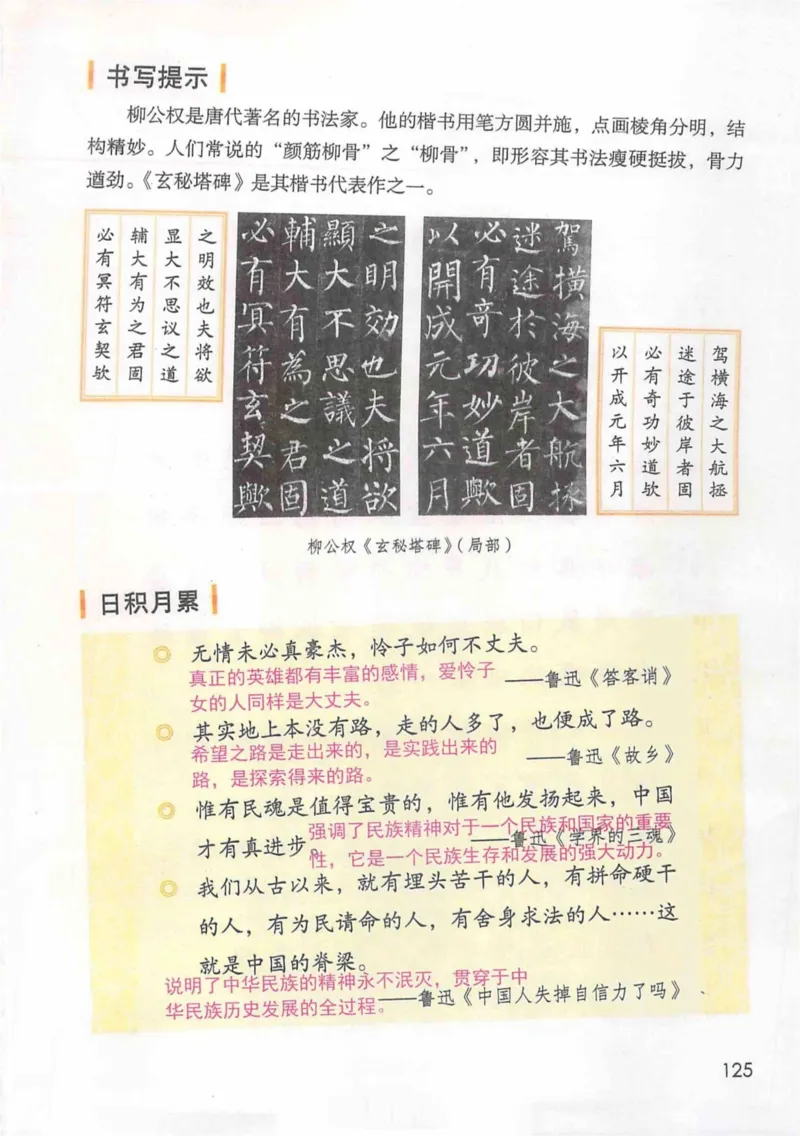 书写提示
柳公权是唐代著名的书法家。他的楷书用笔方圆并施，点画棱角分明，结
构精妙。人们常说的“颜筋柳骨”之“柳骨”，即形容其书法瘦硬挺拔，骨力
遒劲。《玄秘塔碑》是其楷书代表作之一。
之明效也夫将欲
显大不思议之道
辅大有为之君固
必有冥符玄契欤
之明効也夫将欲
顯大不思議之道
輔大有為之君固
必有冥符玄契歟
駕横海之大航拯
迷途於彼岸者固
必有奇功妙道歟
以開成元年六月
驾横海之大航拯
迷途于彼岸者固
必有奇功妙道欤
以开成元年六月
柳公权《玄秘塔碑》（局部）
日积月累
◎ 无情未必真豪杰，怜子如何不丈夫。
真正的英雄都有丰富的感情，爱怜子
——鲁迅《答客诮》
女的人同样是大丈夫。
◎ 其实地上本没有路，走的人多了，也便成了路。
希望之路是走出来的，是实践出来的
——鲁迅《故乡》
路，是探索得来的路。
◎ 惟有民魂是值得宝贵的，惟有他发扬起来，中国
才有真进步。
强调了民族精神对于一个民族和国家的重要
——鲁迅《学界的三魂》
性，它是一个民族生存和发展的强大动力。
◎ 我们从古以来，就有埋头苦干的人，有拼命硬干
的人，有为民请命的人，有舍身求法的人……这
就是中国的脊梁。
说明了中华民族的精神永不泯灭，贯穿于中
华民族历史发展的全过程。
——鲁迅《中国人失掉自信力了吗》
125